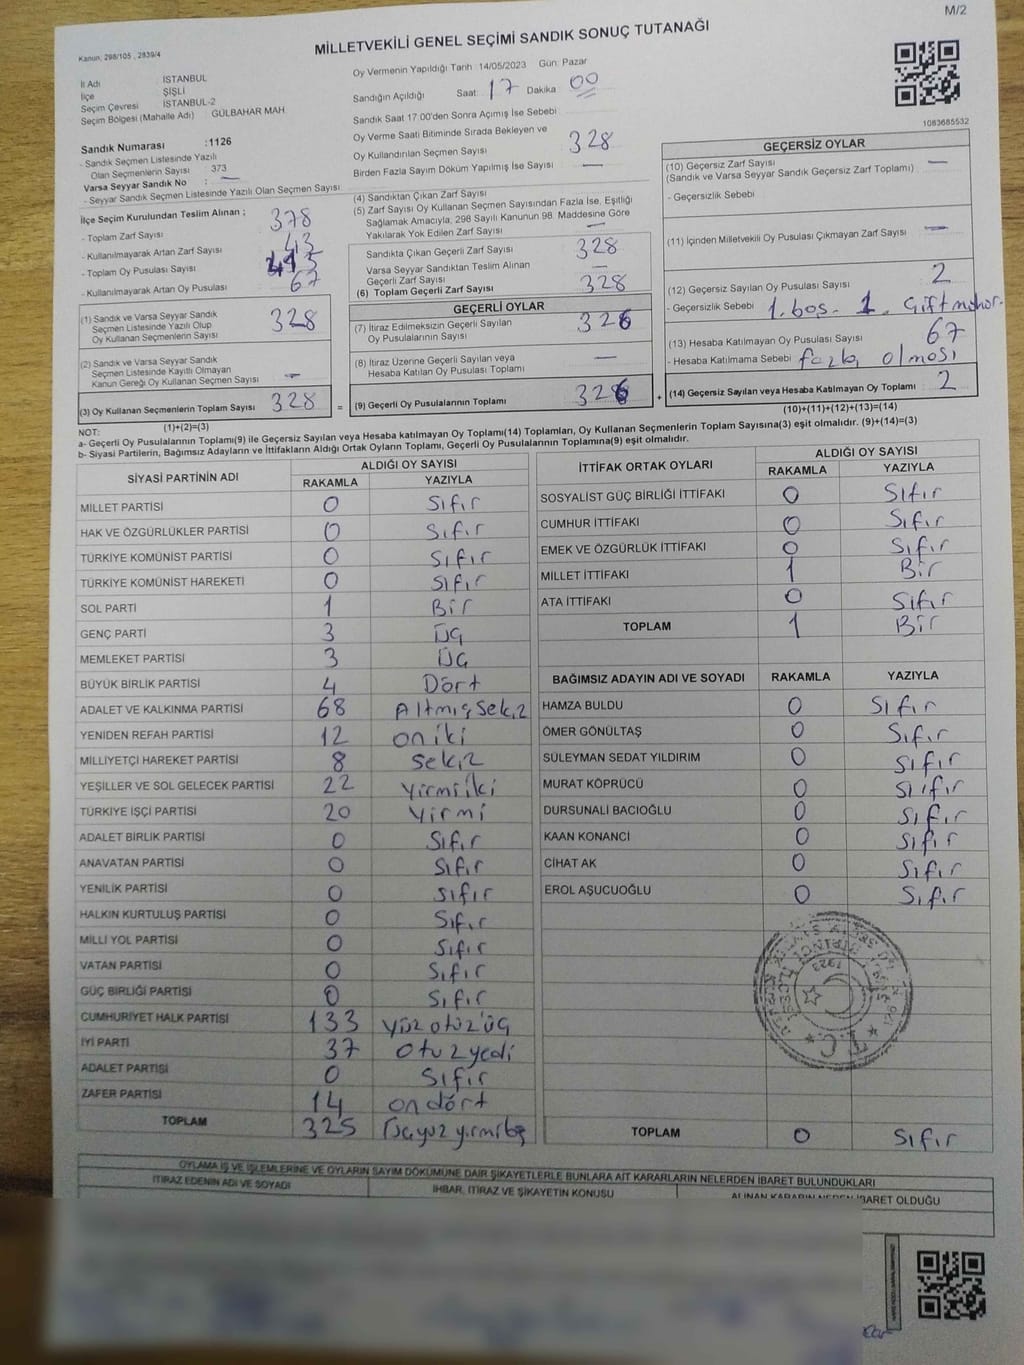 M/2
Kanun, 298/105 , 2839/4
MİLLETVEKİLİ GENEL SEÇİMİ SANDIK SONUÇ TUTANAĞI
İl Adı : İSTANBUL
İlçe : ŞİŞLİ
Seçim Çevresi : İSTANBUL-2
Seçim Bölgesi (Mahalle Adı) : GÜLBAHAR MAH
Sandık Numarası :1126
- Sandık Seçmen Listesinde Yazılı
Olan Seçmenlerin Sayısı : 373
Varsa Seyyar Sandık No : —
- Seyyar Sandık Seçmen Listesinde Yazılı Olan Seçmen Sayısı
İlçe Seçim Kurulundan Teslim Alınan ;
- Toplam Zarf Sayısı 378
- Kullanılmayarak Artan Zarf Sayısı 43
- Toplam Oy Pusulası Sayısı
- Kullanılmayarak Artan Oy Pusulası 67
(1) Sandık ve Varsa Seyyar Sandık
Seçmen Listesinde Yazılı Olup
Oy Kullanan Seçmenlerin Sayısı 328
(2) Sandık ve Varsa Seyyar Sandık
Seçmen Listesinde Kayıtlı Olmayan
Kanun Gereği Oy Kullanan Seçmen Sayısı —
(3) Oy Kullanan Seçmenlerin Toplam Sayısı 328 =
(1)+(2)=(3)
Oy Vermenin Yapıldığı Tarih : 14/05/2023 Gün: Pazar
Sandığın Açıldığı Saat: 17 Dakika 00
Sandık Saat 17:00'den Sonra Açımış İse Sebebi
Oy Verme Saati Bitiminde Sırada Bekleyen ve
Oy Kullandırılan Seçmen Sayısı 328
Birden Fazla Sayım Döküm Yapılmış İse Sayısı —
(4) Sandıktan Çıkan Zarf Sayısı
(5) Zarf Sayısı Oy Kullanan Seçmen Sayısından Fazla İse, Eşitliği
Sağlamak Amacıyla, 298 Sayılı Kanunun 98. Maddesine Göre
Yakılarak Yok Edilen Zarf Sayısı —
Sandıkta Çıkan Geçerli Zarf Sayısı 328
Varsa Seyyar Sandıktan Teslim Alınan
Geçerli Zarf Sayısı —
(6) Toplam Geçerli Zarf Sayısı 328
GEÇERLİ OYLAR
(7) İtiraz Edilmeksizin Geçerli Sayılan
Oy Pusulalarının Sayısı 326
(8) İtiraz Üzerine Geçerli Sayılan veya
Hesaba Katılan Oy Pusulası Toplamı —
(9) Geçerli Oy Pusulalarının Toplamı 326 +
1083685532
GEÇERSİZ OYLAR
(10) Geçersiz Zarf Sayısı —
(Sandık ve Varsa Seyyar Sandık Geçersiz Zarf Toplamı)
- Geçersizlik Sebebi
(11) İçinden Milletvekili Oy Pusulası Çıkmayan Zarf Sayısı —
(12) Geçersiz Sayılan Oy Pusulası Sayısı 2
- Geçersizlik Sebebi 1. boş. 1. Çift mühür.
(13) Hesaba Katılmayan Oy Pusulası Sayısı 67
- Hesaba Katılmama Sebebi fazla olması
(14) Geçersiz Sayılan veya Hesaba Katılmayan Oy Toplamı 2
(10)+(11)+(12)+(13)=(14)
NOT:
a- Geçerli Oy Pusulalarının Toplamı(9) ile Geçersiz Sayılan veya Hesaba katılmayan Oy Toplamı(14) Toplamları, Oy Kullanan Seçmenlerin Toplam Sayısına(3) eşit olmalıdır. (9)+(14)=(3)
b- Siyasi Partilerin, Bağımsız Adayların ve İttifakların Aldığı Ortak Oyların Toplamı, Geçerli Oy Pusulalarının Toplamına(9) eşit olmalıdır.
SİYASİ PARTİNİN ADI ALDIĞI OY SAYISI
RAKAMLA YAZIYLA
MİLLET PARTİSİ 0 Sıfır
HAK VE ÖZGÜRLÜKLER PARTİSİ 0 Sıfır
TÜRKİYE KOMÜNİST PARTİSİ 0 Sıfır
TÜRKİYE KOMÜNİST HAREKETİ 0 Sıfır
SOL PARTİ 1 Bir
GENÇ PARTİ 3 Üç
MEMLEKET PARTİSİ 3 Üç
BÜYÜK BİRLİK PARTİSİ 4 Dört
ADALET VE KALKINMA PARTİSİ 68 Altmış Sekiz
YENİDEN REFAH PARTİSİ 12 on iki
MİLLİYETÇİ HAREKET PARTİSİ 8 Sekiz
YEŞİLLER VE SOL GELECEK PARTİSİ 22 Yirmi iki
TÜRKİYE İŞÇİ PARTİSİ 20 Yirmi
ADALET BİRLİK PARTİSİ 0 Sıfır
ANAVATAN PARTİSİ 0 Sıfır
YENİLİK PARTİSİ 0 Sıfır
HALKIN KURTULUŞ PARTİSİ 0 Sıfır
MİLLİ YOL PARTİSİ 0 Sıfır
VATAN PARTİSİ 0 Sıfır
GÜÇ BİRLİĞİ PARTİSİ 0 Sıfır
CUMHURİYET HALK PARTİSİ 133 Yüz otuz üç
İYİ PARTİ 37 Otuz yedi
ADALET PARTİSİ 0 Sıfır
ZAFER PARTİSİ 14 on dört
TOPLAM 325 Üçyüz yirmi beş
İTTİFAK ORTAK OYLARI ALDIĞI OY SAYISI
RAKAMLA YAZIYLA
SOSYALİST GÜÇ BİRLİĞİ İTTİFAKI 0 Sıfır
CUMHUR İTTİFAKI 0 Sıfır
EMEK VE ÖZGÜRLÜK İTTİFAKI 0 Sıfır
MİLLET İTTİFAKI 1 Bir
ATA İTTİFAKI 0 Sıfır
TOPLAM 1 Bir
BAĞIMSIZ ADAYIN ADI VE SOYADI RAKAMLA YAZIYLA
HAMZA BULDU 0 Sıfır
ÖMER GÖNÜLTAŞ 0 Sıfır
SÜLEYMAN SEDAT YILDIRIM 0 Sıfır
MURAT KÖPRÜCÜ 0 Sıfır
DURSUNALİ BACIOĞLU 0 Sıfır
KAAN KONANCI 0 Sıfır
CİHAT AK 0 Sıfır
EROL AŞUCUOĞLU 0 Sıfır
T.C.
1923
TOPLAM 0 Sıfır
OYLAMA İŞ VE İŞLEMLERİNE VE OYLARIN SAYIM DÖKÜMÜNE DAİR ŞİKAYETLERLE BUNLARA AİT KARARLARIN NELERDEN İBARET BULUNDUKLARI
İTİRAZ EDENİN ADI VE SOYADI İHBAR, İTİRAZ VE ŞİKAYETİN KONUSU ALINAN KARARIN NEDEN İBARET OLDUĞU